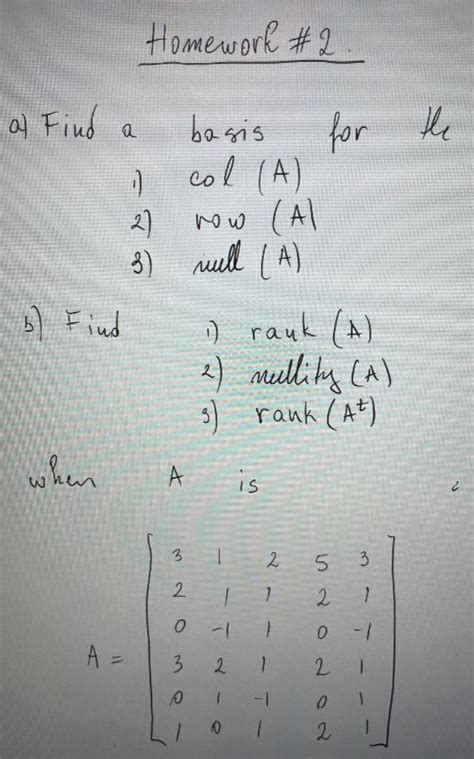 Homework #2.
a) Find a basis for the
1) col (A)
2) row (A)
3) null (A)
b) Find 1) rank (A)
2) nullity (A)
3) rank (A^t)
when A is
A = [
3 1 2 5 3
2 1 1 2 1
0 -1 1 0 -1
3 2 1 2 1
0 1 -1 0 1
1 0 1 2 1
]